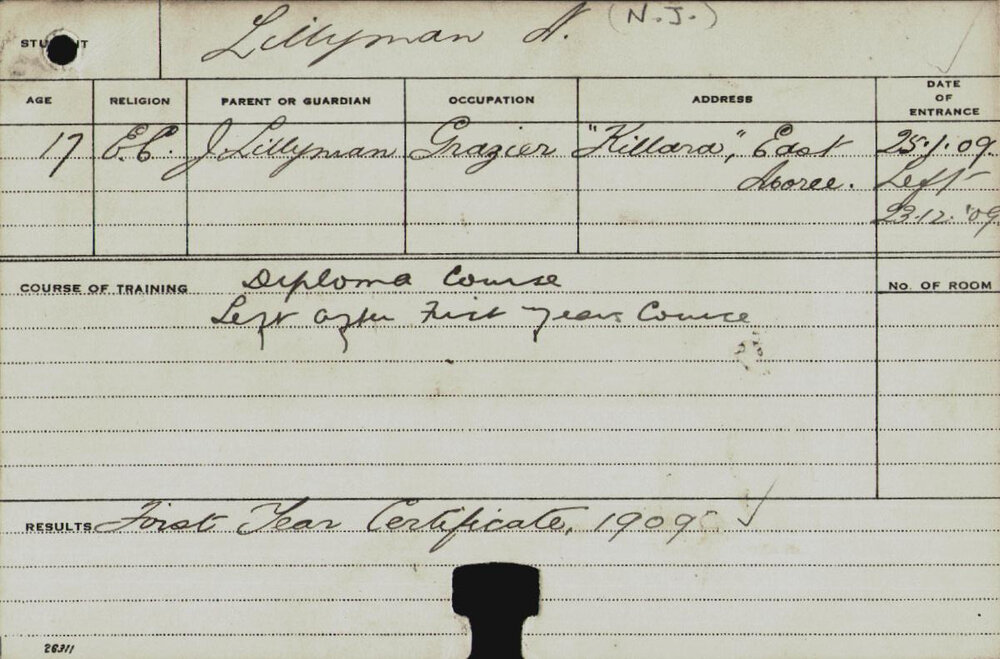 STUDENT Lillyman N. (N.J.)
AGE RELIGION PARENT OR GUARDIAN OCCUPATION ADDRESS DATE OF ENTRANCE
17 E.C. J. Lillyman Grazier "Killara", East 25.1.09.
Moree. Left
23.12.'09
COURSE OF TRAINING Diploma Course No. OF ROOM
Left after First years Course
RESULTS First Year Certificate, 1909
26311